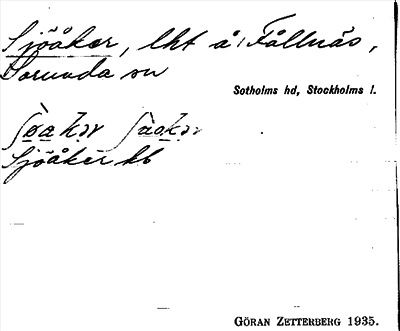 Sjöåker, lht å Fållnäs,
Sorunda sn
Sotholms hd, Stockholms l.
Sjöåker kb
GÖRAN ZETTERBERG 1935.